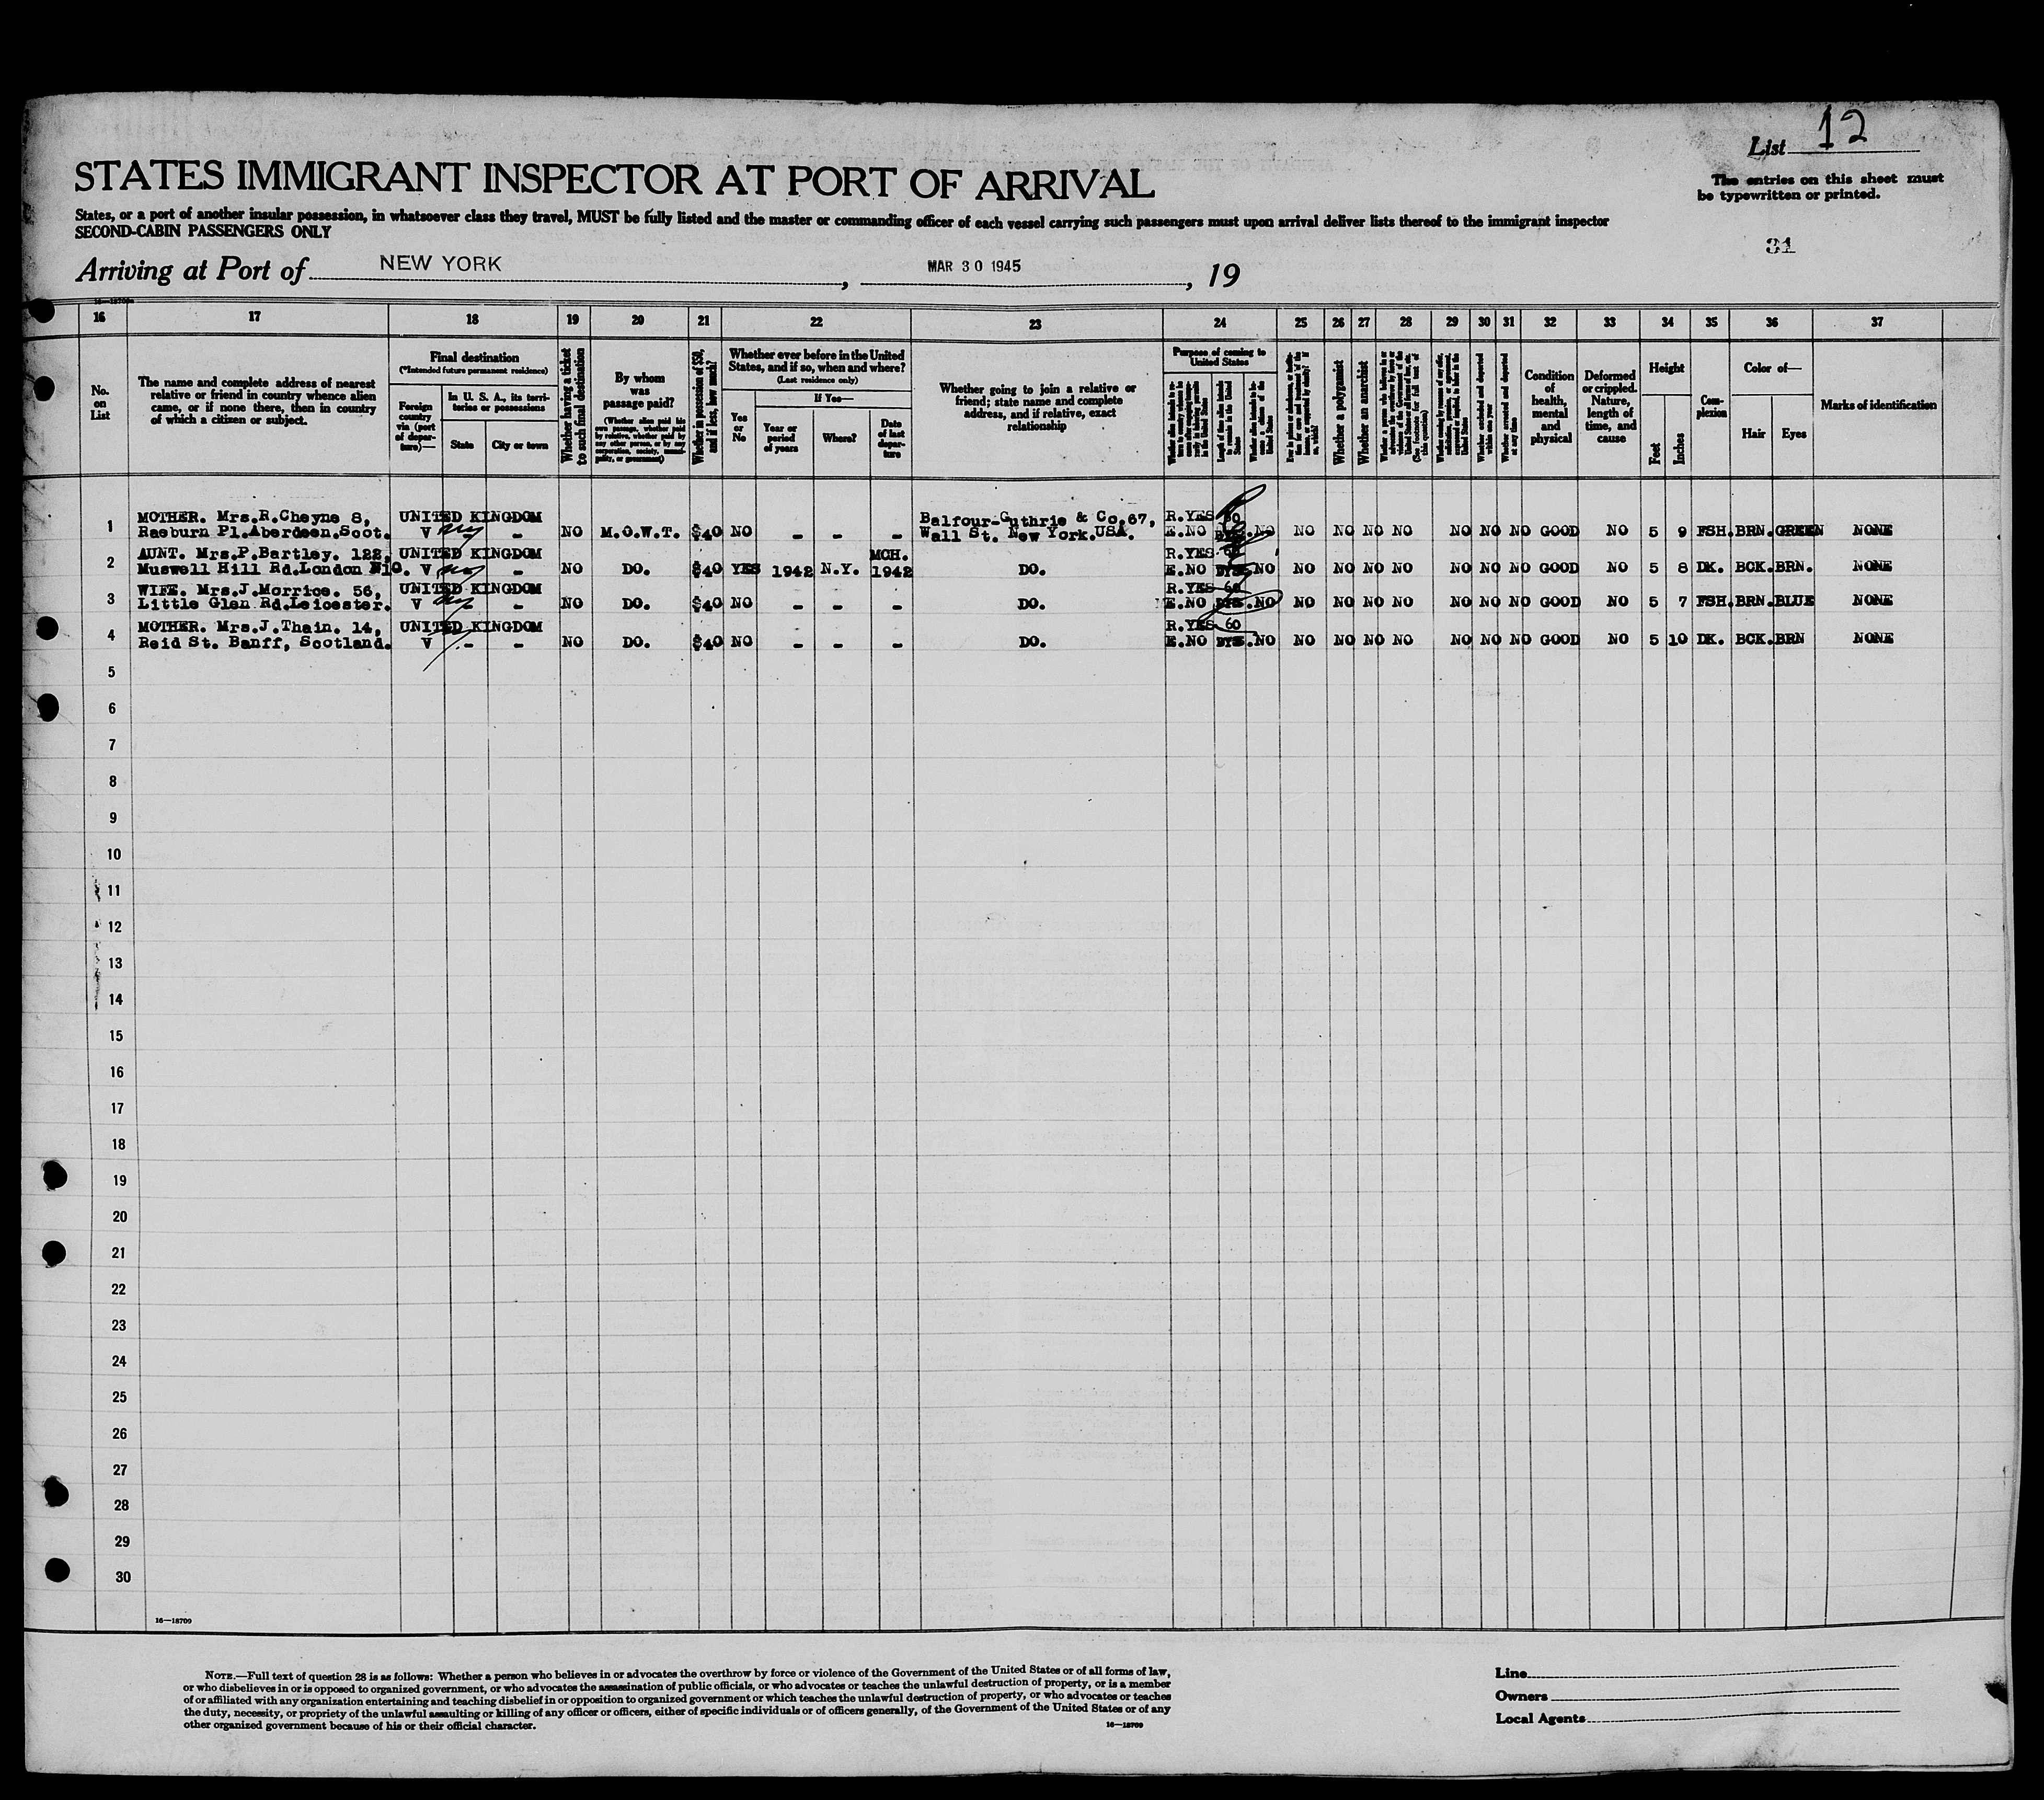 List 12
STATES IMMIGRANT INSPECTOR AT PORT OF ARRIVAL
The entries on this sheet must
be typewritten or printed.
States, or a port of another insular possession, in whatsoever class they travel, MUST be fully listed and the master or commanding officer of each vessel carrying such passengers must upon arrival deliver lists thereof to the immigrant inspector
SECOND-CABIN PASSENGERS ONLY
31
Arriving at Port of NEW YORK, MAR 30 1945, 19
16 17 18 19 20 21 22 23 24 25 26 27 28 29 30 31 32 33 34 35 36 37
No. on List
The name and complete address of nearest
relative or friend in country whence alien
came, or if none there, then in country
of which a citizen or subject.
Final destination
(*Intended future permanent residence)
Foreign
country
via (port
of depar-
ture)—
In U. S. A., its terri-
tories or possessions
State City or town
Whether having a ticket
to such final destination
By whom
was
passage paid?
(Whether alien paid his
own passage, whether paid
by relative, whether paid by
any other person, or by any
corporation, society, munici-
pality, or government)
Whether in possession of $50,
and if less, how much?
Whether ever before in the United
States, and if so, when and where?
(Last residence only)
Yes
or
No
If Yes—
Year or
period
of years
Where?
Date
of last
depar-
ture
Whether going to join a relative or
friend; state name and complete
address, and if relative, exact
relationship
Purpose of coming to
United States
Whether a polygamist
Whether an anarchist
Condition
of
health,
mental
and
physical
Deformed
or crippled.
Nature,
length of
time, and
cause
Height
Feet Inches
Com-
plexion
Color of—
Hair Eyes
Marks of identification
MOTHER. Mrs.R.Cheyne 8, UNITED KINGDOM Balfour-Guthrie & Co.67, R.YES 60
1 Raeburn Pl.Aberdeen.Scot. V - NO M.O.W.T. $40 NO - - - Wall St. New York.USA. E.NO DYS.NO NO NO NO NO NO NO NO GOOD NO 5 9 FSH. BRN. GREEN NONE
AUNT. Mrs.P.Bartley. 122, UNITED KINGDOM MCH. R.YES
2 Muswell Hill Rd.London N10. V - NO DO. $40 YES 1942 N.Y. 1942 DO. E.NO DYS.NO NO NO NO NO NO NO NO GOOD NO 5 8 DK. BCK. BRN. NONE
WIFE. Mrs.J.Morrice. 56, UNITED KINGDOM R.YES 60
3 Little Glen Rd.Leicester. V - NO DO. $40 NO - - - DO. E.NO DYS.NO NO NO NO NO NO NO NO GOOD NO 5 7 FSH. BRN. BLUE NONE
MOTHER. Mrs.J.Thain. 14, UNITED KINGDOM R.YES 60
4 Reid St. Banff, Scotland. V - - NO DO. $40 NO - - - DO. E.NO DYS.NO NO NO NO NO NO NO NO GOOD NO 5 10 DK. BCK. BRN NONE
5
6
7
8
9
10
11
12
13
14
15
16
17
18
19
20
21
22
23
24
25
26
27
28
29
30
16—18709
NOTE.—Full text of question 28 is as follows: Whether a person who believes in or advocates the overthrow by force or violence of the Government of the United States or of all forms of law,
or who disbelieves in or is opposed to organized government, or who advocates the assassination of public officials, or who advocates or teaches the unlawful destruction of property, or is a member
of or affiliated with any organization entertaining and teaching disbelief in or opposition to organized government or which teaches the unlawful destruction of property, or who advocates or teaches
the duty, necessity, or propriety of the unlawful assaulting or killing of any officer or officers, either of specific individuals or of officers generally, of the Government of the United States or of any
other organized government because of his or their official character.
16—18709
Line
Owners
Local Agents